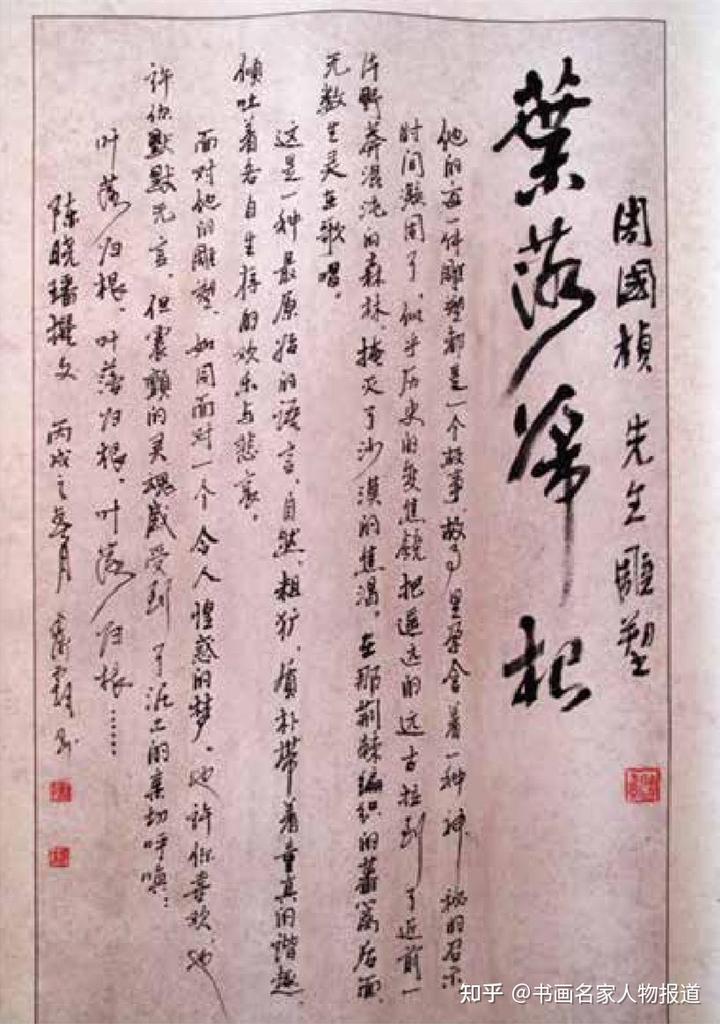 周國楨 先生雕塑
葉落歸根
他的每一件雕塑都是一个故事,故事里孕含着一种神秘的召示
时间凝固了,似乎历史的变焦镜把遥远的远古拉到了近前一
片野莽混沌的森林,掩灭了沙漠的焦渴,在那荆棘编织的蕃篱后面,
无数生灵在歌唱。
这是一种最原始的语言,自然、粗犷、质朴带着童真的谐趣
倾吐着各自生存的欢乐与悲哀。
面对他的雕塑,如同面对一个令人惶惑的梦。也许你喜欢,也
许你默默无言,但震颤的灵魂感受到了泥土的亲切呼唤:
叶落归根,叶落归根,叶落归根……
陈晓璠撰文 丙戌之 月
知乎 @书画名家人物报道